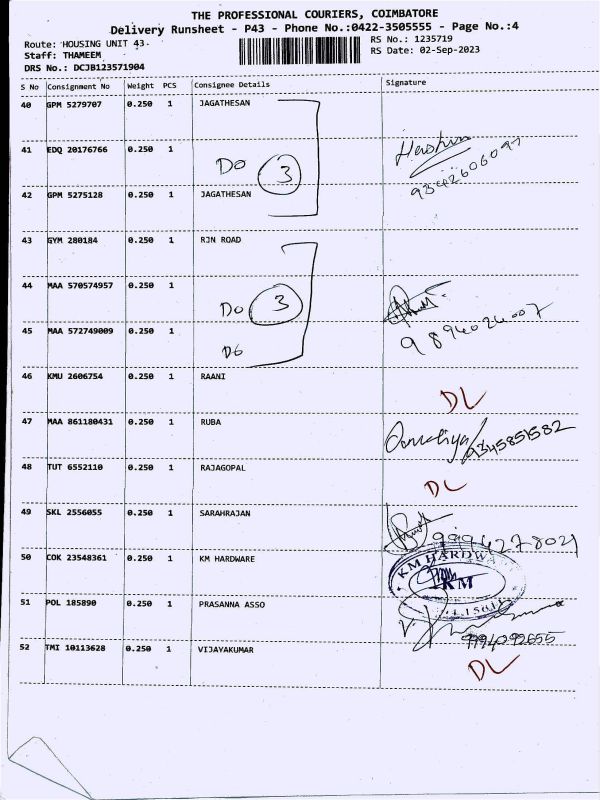 THE PROFESSIONAL COURIERS, COIMBATORE
Delivery Runsheet - P43 - Phone No.:0422-3505555 - Page No.:4
Route: HOUSING UNIT 43. RS No.: 1235719
Staff: THAMEEM RS Date: 02-Sep-2023
DRS No.: DCJB123571904
S No Consignment No Weight PCS Consignee Details Signature
40 GPM 5279707 0.250 1 JAGATHESAN
41 EDQ 20176766 0.250 1
DO 3
9342606097
42 GPM 5275128 0.250 1 JAGATHESAN
43 GYM 280184 0.250 1 RJN ROAD
44 MAA 570574957 0.250 1
DO 3
9894024007
45 MAA 572749009 0.250 1
DO
46 KMU 2606754 0.250 1 RAANI
DL
47 MAA 861180431 0.250 1 RUBA
9345851582
48 TUT 6552110 0.250 1 RAJAGOPAL
DL
49 SKL 2556055 0.250 1 SARAHRAJAN
9994278021
50 COK 23548361 0.250 1 KM HARDWARE
KM HARDWA
KM
51 POL 185890 0.250 1 PRASANNA ASSO
9994092655
52 TMI 10113628 0.250 1 VIJAYAKUMAR
DL